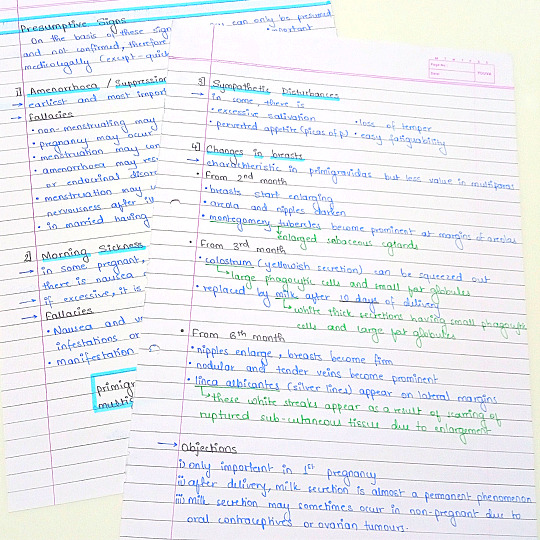 Presumptive Signs
On the basis of these sign
can only be presumed
and not confirmed, therefore
important
medicolegally (except - quick
1) Amenorrhoea / Suppression
→ earliest and most import
→ Fallacies
• non-menstruating may
• pregnancy may occur
• menstruation may con
• amenorrhoea may res
or endocrinal disor
• menstruation may
nervousness after
• in married having
2) Morning Sickness
→ in some pregnant,
there is nausea
→ if excessive, it is
→ Fallacies
• Nausea and
infestations or
• manifestation
primigr
multi
3) Sympathetic Disturbances
→ in some, there is
• excessive salivation • loss of temper
• perverted appetite (picas of p) • easy fatigability
4) Changes in breasts
→ characteristic in primigravidas but less value in multiparas
• From 2nd month
• breasts start enlarging
• areola and nipples darken
• montgomery tubercles become prominent at margins of areolas
enlarged sebaceous glands
• From 3rd month
• colostrum (yellowish secretion) can be squeezed out
large phagocytic cells and small fat globules
• replaced by milk after 10 days of delivery
white thick secretions having small phagocytic
cells and large fat globules
• From 6th month
• nipples enlarge, breasts become firm
• nodular and tender veins become prominent
• linea albicantes (silver lines) appear on lateral margins
these white streaks appear as a result of scarring of
ruptured sub-cutaneous tissue due to enlargement
→ Objections
i) only important in 1st pregnancy
ii) after delivery, milk secretion is almost a permanent phenomenon
iii) milk secretion may sometimes occur in non-pregnant due to
oral contraceptives or ovarian tumours.